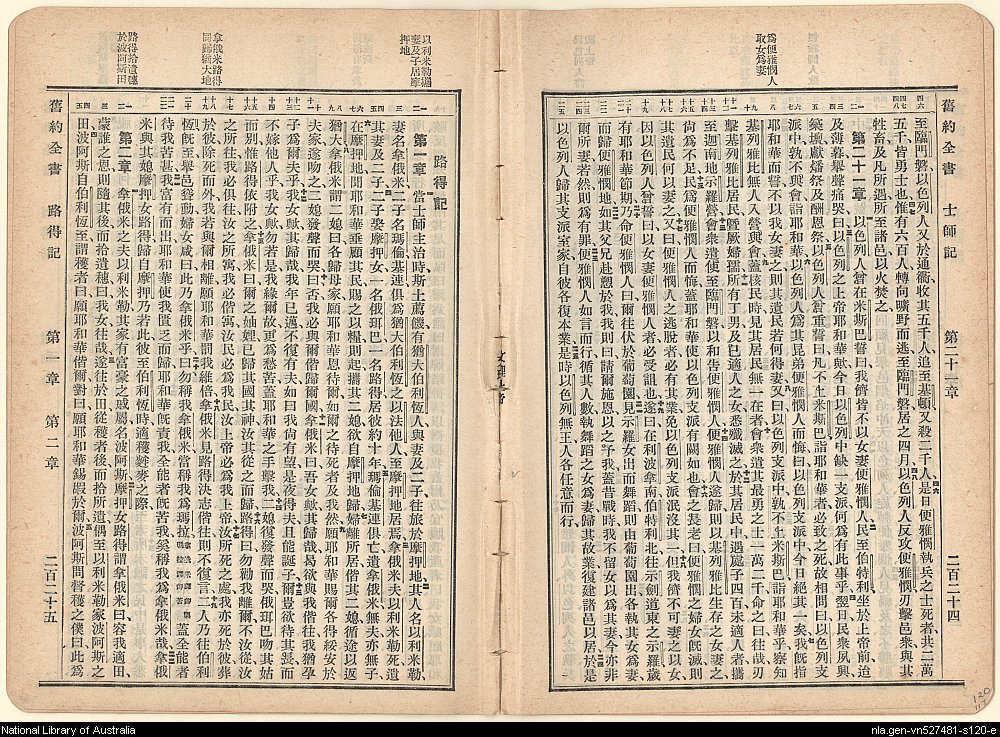 爲便雅憫人
取女爲妻
舊約全書 士師記 第二十一章 二百二十四
至臨門磐以色列人又於通衢收其五千人追至基頓又殺二千人是日便雅憫執兵之士死者共二萬
五千皆勇士也惟有六百人轉向曠野而逃至臨門磐居之四月以色列人反攻便雅憫刃擊邑衆與其
牲畜及凡所遇所至諸邑以火焚之
第二十一章 以色列人曾在米斯巴誓曰我儕皆不以女妻便雅憫人民至伯特利坐於上帝前迨
及薄暮舉聲號哭曰以色列之上帝耶和華歟今日以色列中缺一支派何爲有此事乎翌日民衆夙興
築壇獻燔祭及酬恩祭以色列人曾重誓曰凡不上米斯巴詣耶和華者必致之死故相問曰以色列支
派中孰不與會詣耶和華以色列人爲其兄弟便雅憫人而悔曰以色列支派中今日絕其一矣我旣指
耶和華而誓不以我女妻之則其遺民若何得妻又曰以色列支派中孰不上米斯巴詣耶和華乎察知
基列雅比無人入營與會蓋核民時見其居民無一在者會衆遣其最勇之士一萬二千命之曰往哉刃
擊基列雅比居民暨厥婦孺所有丁男及已適人之女悉殲滅之於其居民中遇處子四百未適人者攜
至迦南地示羅營會衆遣使至臨門磐以和告便雅憫人便雅憫人遂歸則以基列雅比生存之女妻之
尚爲不足民爲便雅憫人而悔蓋耶和華使以色列支派有闕如也會之長老曰便雅憫之婦女旣滅則
其遺民何以妻之又曰便雅憫人之逃脫者必有其業免以色列支派泯沒其一但我儕不可妻之以女
因以色列人曾誓曰以女妻便雅憫人者必受詛也遂曰在利波拿南伯特利北往示劍道東之示羅歲
有耶和華節期乃命便雅憫人曰爾往伏於葡萄園見示羅女出而舞蹈則由葡萄園出各執其女爲妻
而歸便雅憫地如其父兄赴愬於我我則曰請爾施恩以之予我蓋昔戰時我不留女以爲其妻今亦非
爾所妻若然則有罪便雅憫人如言而行循其人數執舞蹈之女爲妻歸其故業復建諸邑以居於是
以色列人歸其支派室家自彼各復本業是時以色列無王人各任意而行
以利米勒攜
妻及子居摩
押地
拿俄米路得
同歸猶大地
路得拾遺穗
於波阿斯田
路得記
第一章 當士師主治時斯土薦饑有猶大伯利恆人與妻及二子往旅於摩押地其人名以利米勒
妻名拿俄米二子名瑪倫基連俱爲猶大伯利恆之以法他人至摩押地居焉拿俄米夫以利米勒死遺
其妻及二子二子娶摩押女一名俄珥巴一名路得居彼約十年瑪倫基連俱亡遺拿俄米無夫亦無子
在摩押地聞耶和華垂顧其民賜之以糧則起攜其二媳欲自摩押地歸婦離所居偕其二媳循途以返
猶大拿俄米謂二媳曰各歸母家願耶和華恩待爾如爾之待死者及我然願耶和華賜爾各得綏安於
夫家遂吻之二媳發聲而哭曰否我必與爾偕歸爾國拿俄米曰吾女歟其歸哉曷欲與我偕往我猶孕
子爲爾夫乎我女歟其歸哉我年已邁不復有夫如曰我尚有望是夜得夫且能誕子爾豈欲待其長而
不嫁他人乎我女歟勿若是我緣爾故更爲愁苦蓋耶和華之手擊我二媳復發聲而哭俄珥巴吻其姑
而別惟路得依附之拿俄米曰爾之妯娌已歸其國其神汝其從之而歸路得曰勿勸我離爾不從汝歸
之所往我必俱往汝之所寓我必偕寓汝民必爲我民汝上帝必爲我上帝汝所死之處我亦死於彼葬
於彼除死而外我若與爾相離願耶和華罰我維倍拿俄米見路得決志偕往則不復言二人乃往伯利
恆旣至舉邑聳動婦女咸曰此乃拿俄米乎曰勿稱我爲拿俄米當稱我爲瑪拉蓋全能者
待我苦甚我富有而出耶和華使我匱乏而歸耶和華旣責我全能者旣苦我奚稱我爲拿俄米哉拿俄
米與其媳摩押女路得歸自摩押乃若此彼至伯利恆時適穫麰麥之際
第二章 拿俄米之夫以利米勒其家有富豪之戚屬名波阿斯摩押女路得謂拿俄米曰容我適田
蒙誰之恩則隨其後而拾遺穗曰我女往哉遂往於田從穫者後而拾所遺偶至以利米勒家波阿斯之
田波阿斯自伯利恆至謂穫者曰願耶和華偕爾對曰願耶和華錫嘏於爾波阿斯問督穫之僕曰此爲
舊約全書 路得記 第一章 第二章 二百二十五
National Library of Australia
nla.gen-vn527481-s120-e